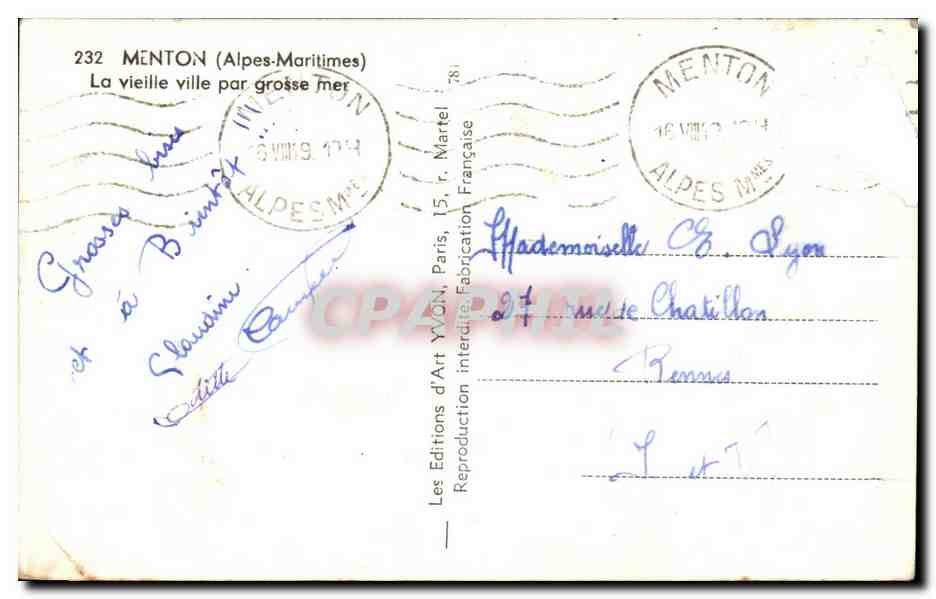 232 MENTON (Alpes-Maritimes)
La vieille ville par grosse mer
MENTON
ALPES Mmes
MENTON
16 VIII
ALPES Mmes
Grosses bises
et à Bientôt
Claudine
Odette
CPAPHIL
Les Editions d'Art YVON, Paris, 15, r. Martel
Reproduction interdite. Fabrication Française
781
Mademoiselle E. Lyon
27 rue de Chatillon
Rennes
I et